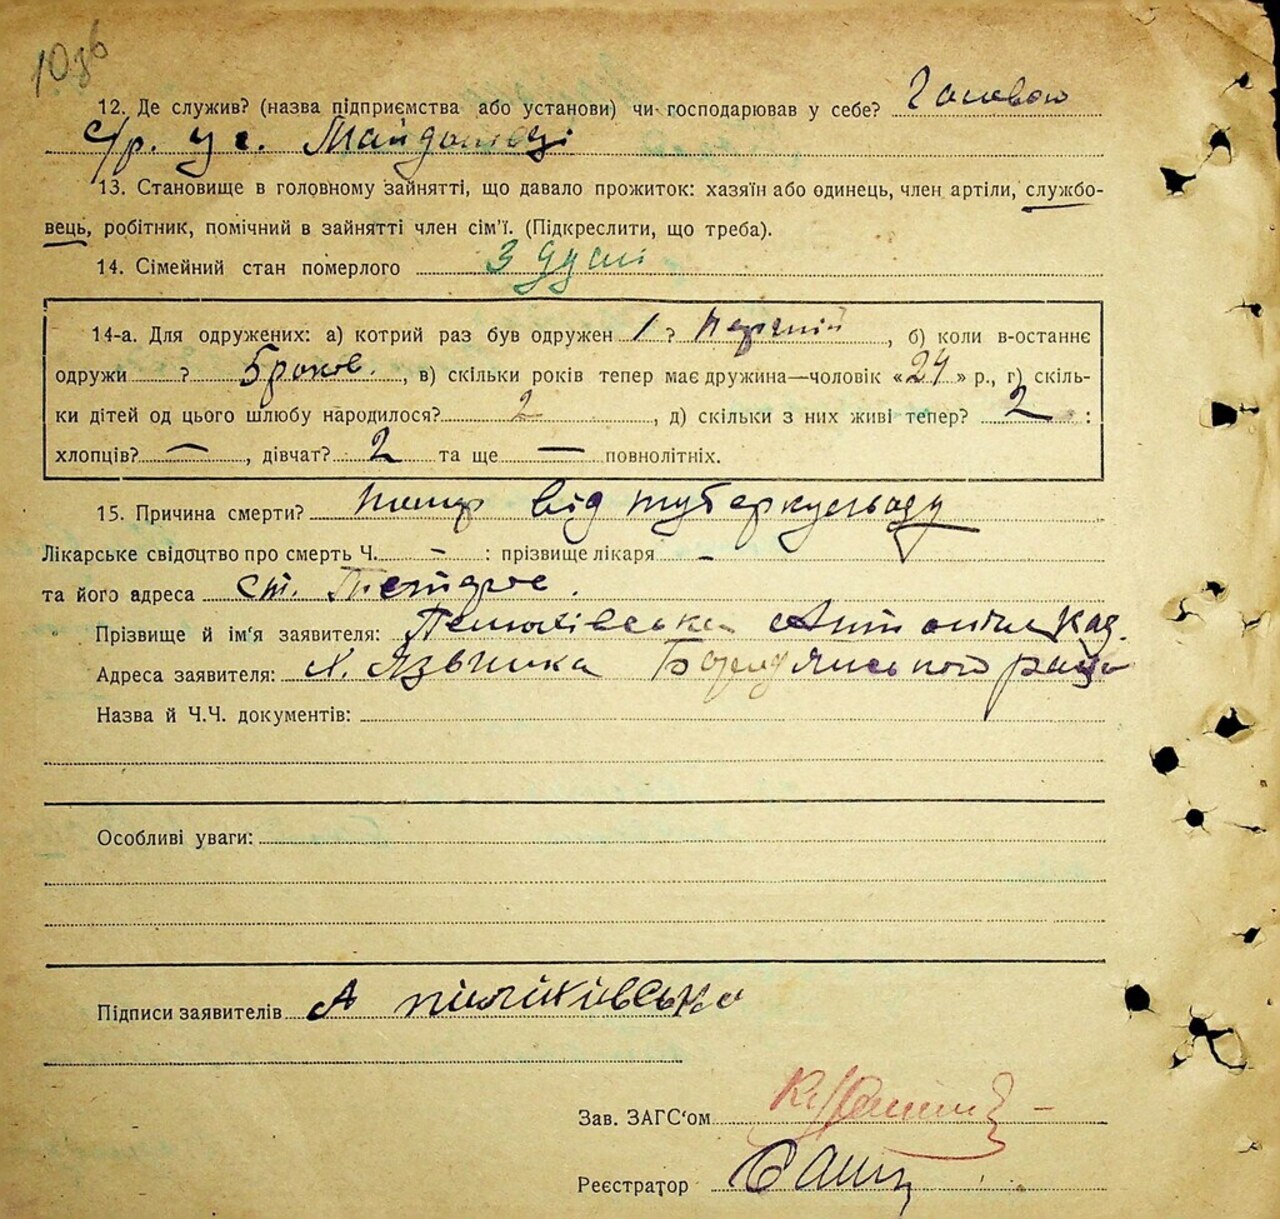 12. Де служив? (назва підприємства або установи) чи господарював у себе? Головою
с/р. у с.
13. Становище в головному зайнятті, що давало прожиток: хазяїн або одинець, член артіли, службо-
вець, робітник, помічний в зайнятті член сім'ї. (Підкреслити, що треба).
14. Сімейний стан померлого З душі
14-а. Для одружених: а) котрий раз був одружен 1 ? перший, б) коли в-останнє
одружи ? 5 роков., в) скільки років тепер має дружина—чоловік «24» р., г) скіль-
ки дітей од цього шлюбу народилося? 2, д) скільки з них живі тепер? 2 :
хлопців? —, дівчат? 2 та ще — повнолітніх.
15. Причина смерти? помер від туберкульозу
Лікарське свідоцтво про смерть Ч. - : прізвище лікаря -
та його адреса ст.
Прізвище й ім'я заявителя:
Адреса заявителя: х. Язвинка Бородянського району
Назва й Ч.Ч. документів:
Особливі уваги:
Підписи заявителів А
Зав. ЗАГС'ом
Реєстратор